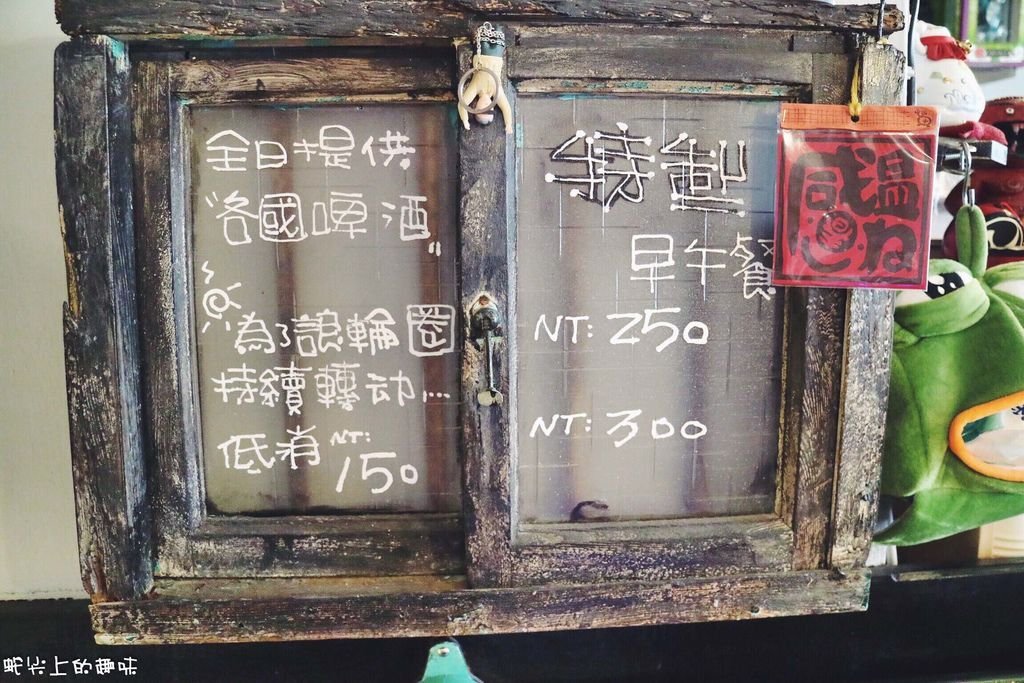 全日提供
"各國啤酒"
為了讓輪圈
持續轉动...
低消 NT:
150
特製
早午餐
NT: 250
NT: 300
溫
感心
ね
舌尖上的趣味